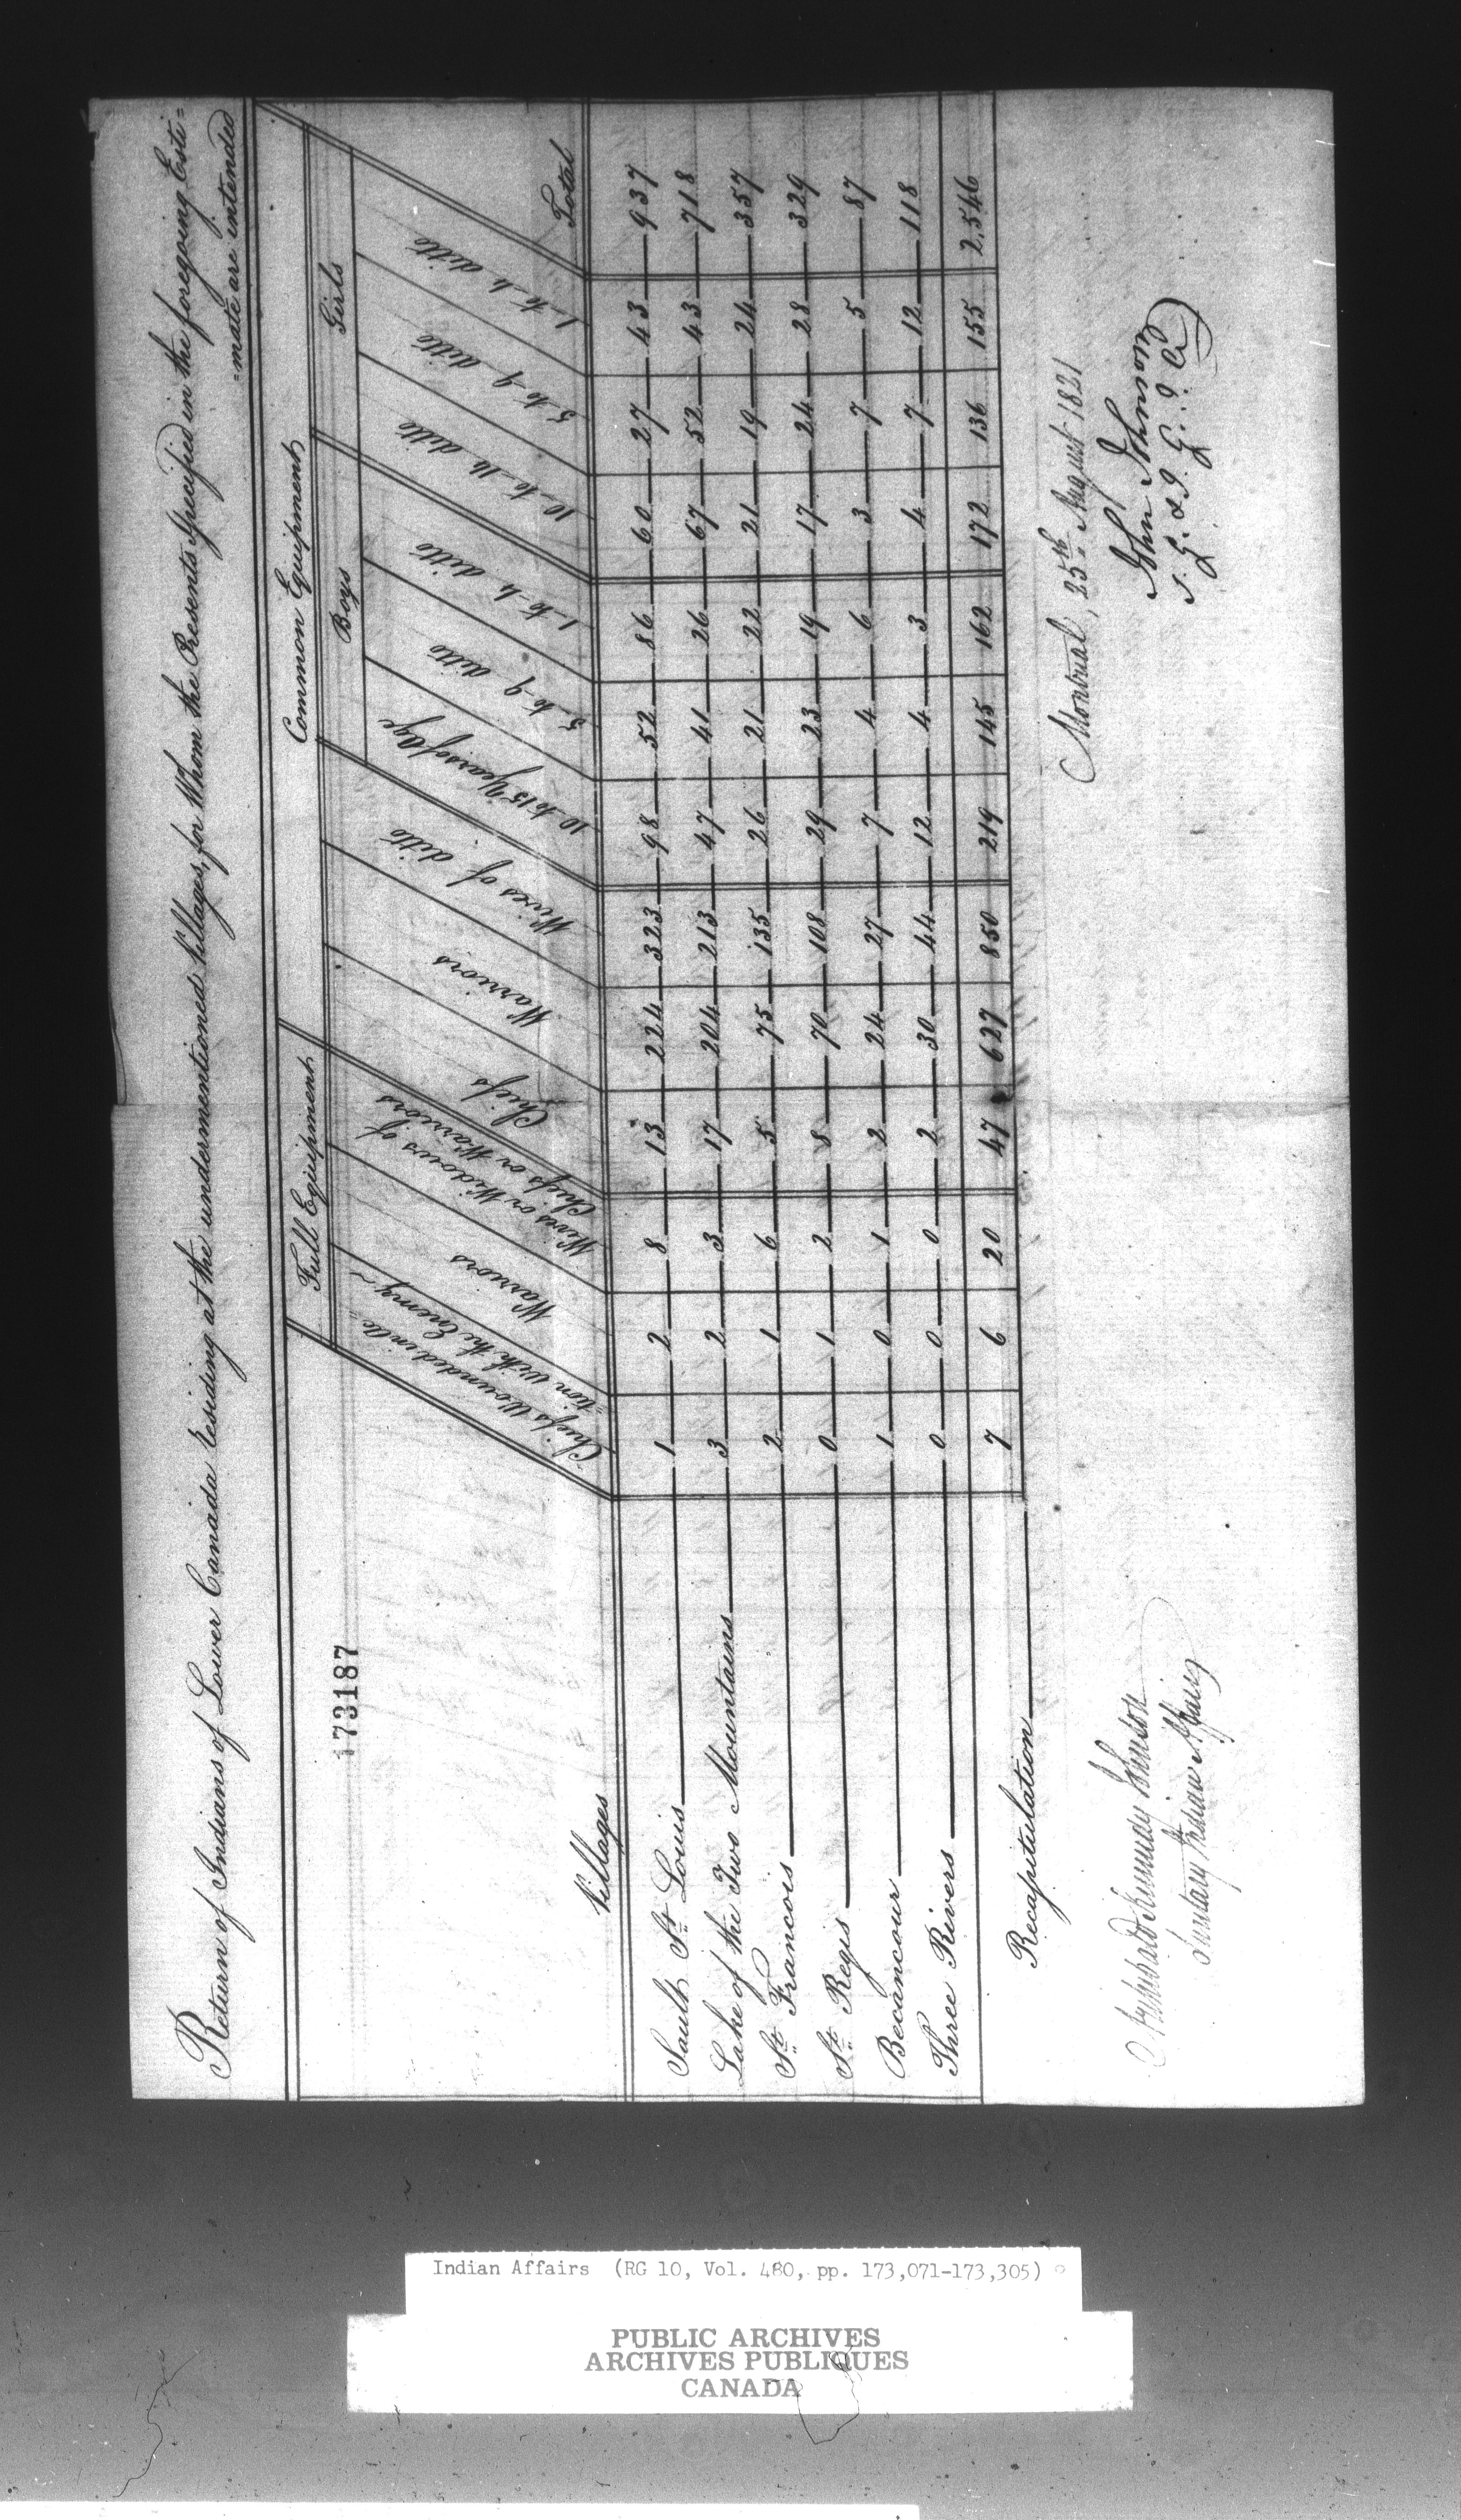 Return of Indians of Lower Canada residing at the undermentioned Villages, for Whom the Presents Specified in the foregoing Esti=
=mate are intended
173187
Full Equipment
Common Equipment
Boys
Girls
Villages
Chiefs Wounded in the
tion with the Enemy
Warriors
Wives or Widows of
Chiefs or Warriors
Chiefs
Warriors
Wives of ditto
10 to 15 Years of Age
5 to 9 ditto
1 to 4 ditto
10 to 14 ditto
5 to 9 ditto
1 to 4 ditto
Total
Sault St. Louis 1 2 8 13 224 323 98 52 86 60 27 43 937
Lake of the Two Mountains 3 2 3 17 204 213 47 41 26 67 52 43 718
St. Francois 2 1 6 5 75 135 26 21 22 21 19 24 357
St. Regis 0 1 2 8 70 108 29 23 19 17 24 28 329
Becancour 1 0 1 2 24 27 7 4 6 3 7 5 87
Three Rivers 0 0 0 2 30 44 12 4 3 4 7 12 118
Recapitulation 7 6 20 47 627 850 219 145 162 172 136 155 2,546
Montreal, 25th August 1821
John Johnson
Archibald Kennedy Johnson
Secretary Indian Affairs
Indian Affairs (RG 10, Vol. 480, pp. 173,071-173,305)
PUBLIC ARCHIVES
ARCHIVES PUBLIQUES
CANADA